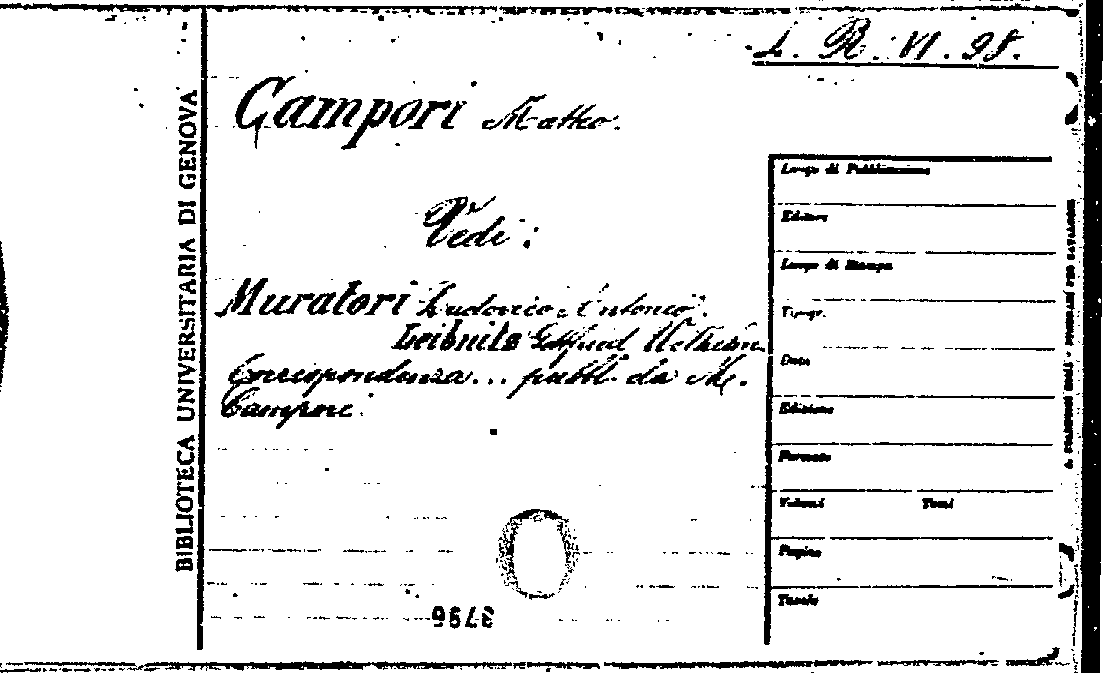 L. R. VI. 98.
BIBLIOTECA UNIVERSITARIA DI GENOVA
Campori Matteo.
Vedi:
Muratori Ludovico Antonio.
Leibnits Gottfried Wilhelm.
Corrispondenza... pubbl. da M.
Campori.
3796
Luogo di Pubblicazione
Editore
Luogo di Stampa
Tipogr.
Data
Edizione
Formato
Volumi Tomi
Pagine
Tavole